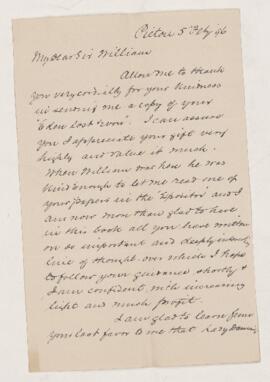 Pictou 5 Feby 96
My dear Sir William
Allow me to thank
you very cordially for your kindness
in sending me a copy of your
"Eden Lost & Won". I can assure
you I appreciate your gift very
highly and value it much.
When William was here he was
kind enough to let me read one of
your papers in the "Expositor" and I
am now more than glad to have
in this book all you have written
on so important and deeply interesting
line of thought over which I hope
to follow your guidance shortly &
I am confident, with increasing
light and much profit.
I am glad to learn from
your last favor to me that Lady Dawson